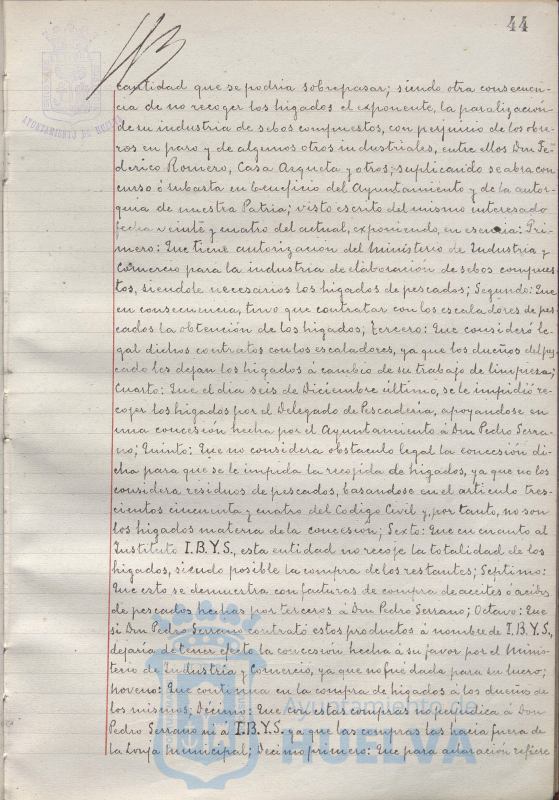 44
AYUNTAMIENTO DE HUELVA
cantidad que se podria sobrepasar; siendo otra consecuen-
cia de no recoger los higados el exponente, la paralización
de su industria de sebos compuestos, con perjuicio de los obre-
ros en paro y de algunos otros industriales, entre ellos Don Fe-
derico Romero, Casa Azqueta y otros; suplicando se abra con-
curso ó subasta en beneficio del Ayuntamiento y de la autar-
quia de nuestra Patria; visto escrito del mismo interesado
fecha veinte y cuatro del actual, exponiendo, en esencia: Pri-
mero: Que tiene autorización del Ministerio de Industria y
Comercio para la industria de elaboración de sebos compues-
tos, siendole necesarios los higados de pescados; Segundo: Que
en consecuencia, tuvo que contratar con los escaladores de pes-
cados la obtención de los higados; Tercero: Que consideró le-
gal dichos contratos con los escaladores, ya que los dueños del pes-
cado les dejan los higados á cambio de su trabajo de limpieza;
Cuarto: Que el dia seis de Diciembre último, se le impidió re-
cojer los higados por el Delegado de Pescaderia, apoyandose en
una concesión hecha por el Ayuntamiento á Don Pedro Serra-
no; Quinto: Que no considera obstaculo legal la concesión di-
cha para que se le impida la recojida de higados, ya que no los
considera residuos de pescados, basandose en el articulo tres-
cientos cincuenta y cuatro del Codigo Civil y, por tanto, no son
los higados materia de la concesion; Sexto: Que en cuanto al
Instituto I.B.Y.S., esta entidad no recoje la totalidad de los
higados, siendo posible la compra de los restantes; Septimo:
Que esto se demuestra con facturas de compra de aceites ó acidos
de pescados hechas por terceros á Don Pedro Serrano; Octavo: Que
si Don Pedro Serrano contrató estos productos á nombre de I.B.Y.S.,
dejaria de tener efecto la concesión hecha á su favor por el Minis-
terio de Industria y Comercio, ya que no fué dada para su lucro;
Noveno: Que continua en la compra de higados á los dueños de
los mismos; Décimo: Que con estas compras no perjudica á Don
Pedro Serrano ni á I.B.Y.S. ya que las compras las hacia fuera de
la Lonja Municipal; Decimo primero: Que para aclaración refiere
Ayuntamiento de
HUELVA